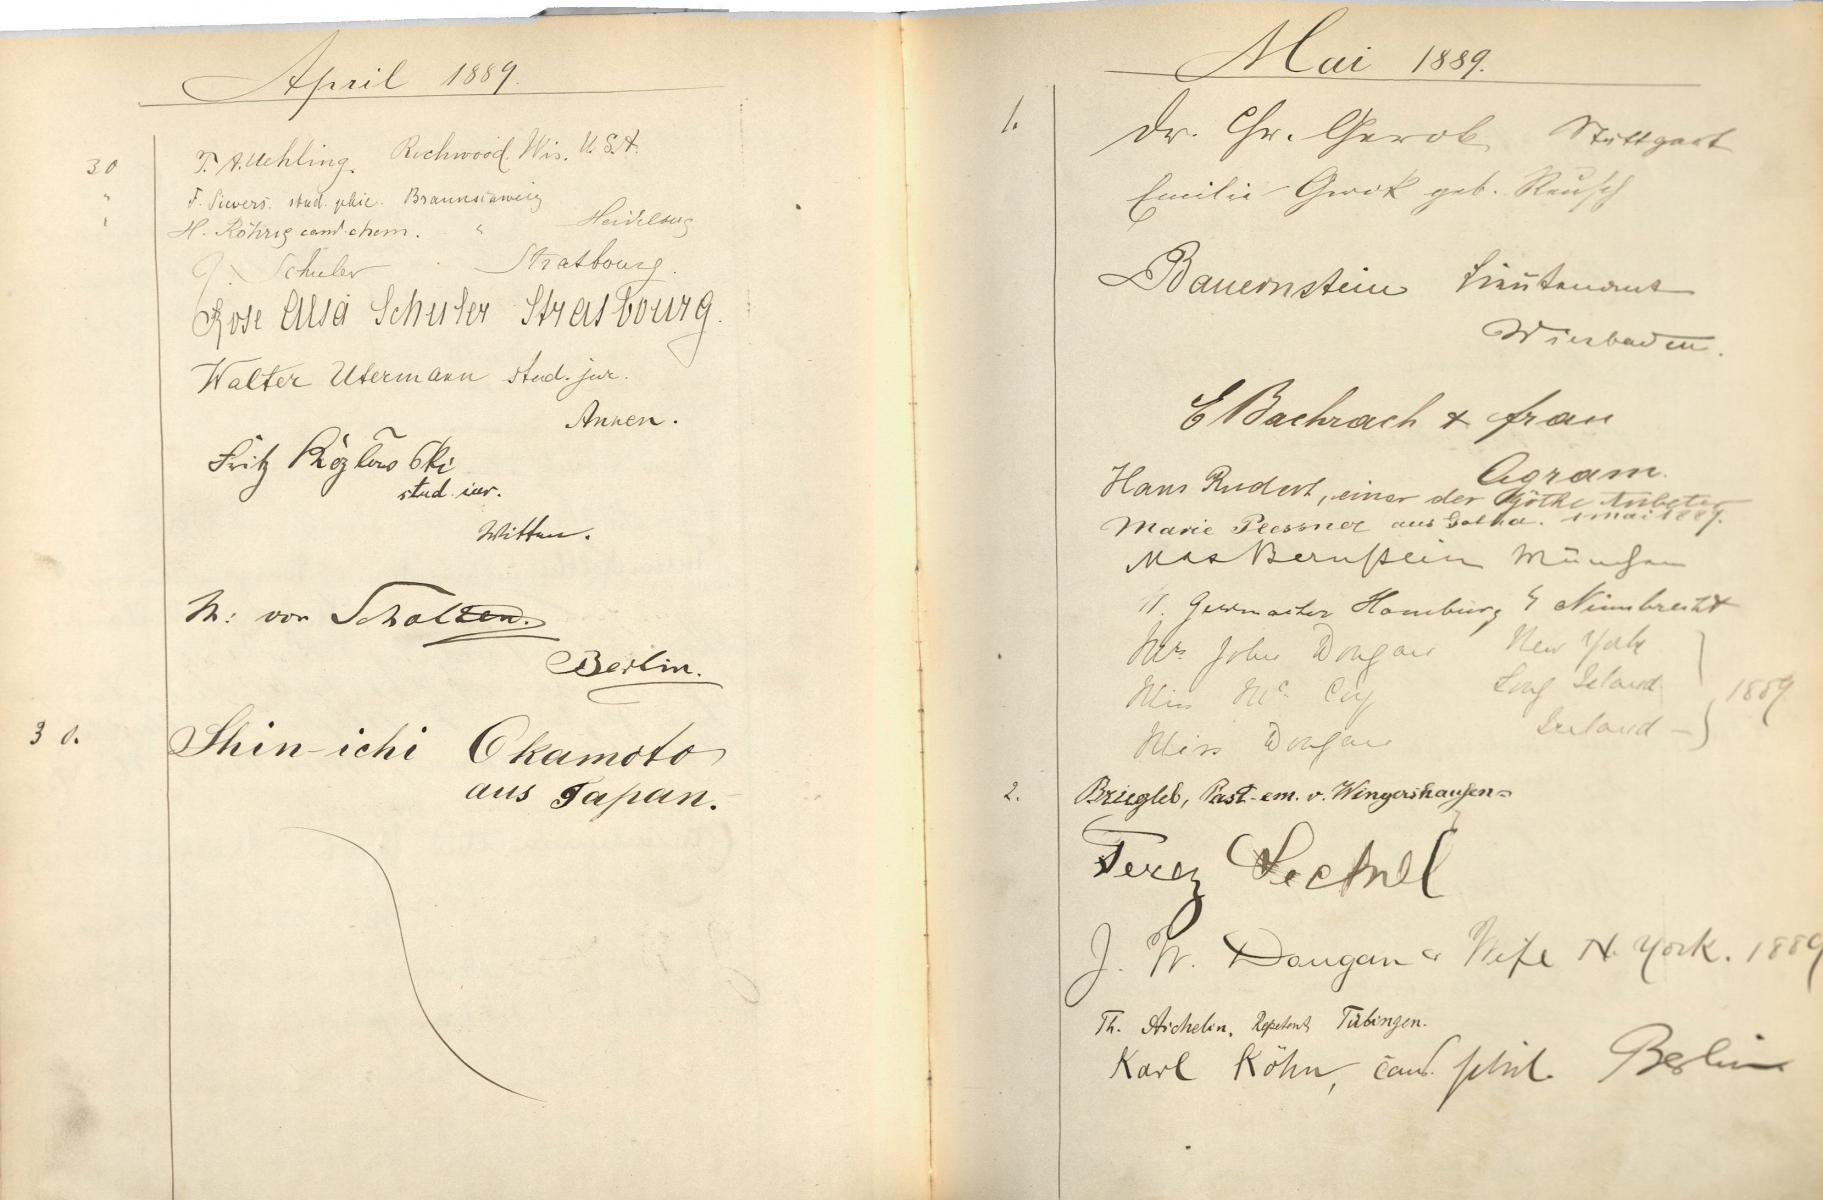 April 1889.
30 F. A. Uehling. Richwood. Wis. U.S.A.
" F. Sievers. stud. phil. Braunschweig
" H. Röhrig cand. chem. " Heidelberg
Schuler Strasbourg.
Rose Elsa Schuler Strasbourg.
Walter Utermann stud. jur.
Annen.
Fritz
stud. iur.
Witten.
von Scholten.
Berlin.
30. Shin-ichi Okamoto
aus Japan.
Mai 1889.
1. Dr. Chr. Gerok Stuttgart
Emilie Gerok geb. Reusch
Bauernstein Lieutenant
Wiesbaden.
E Bachrach & frau
Agram.
Hans Rudert, einer der Göthe Anbeter
Marie Plessner aus Gotha. 1 Mai 1889.
Max Bernstein München
Homburg Nümbrecht
Mrs John Dougan New York
Miss Mc Coy Long Island 1889
Miss Dougan Ireland
2. Briegleb, Past. em. v. Wingershausen
Terez
J. W. Dougan & Wife N. York. 1889
Th. Aichelin, Repetent Tübingen.
Karl Köhn, cand. phil. Berlin